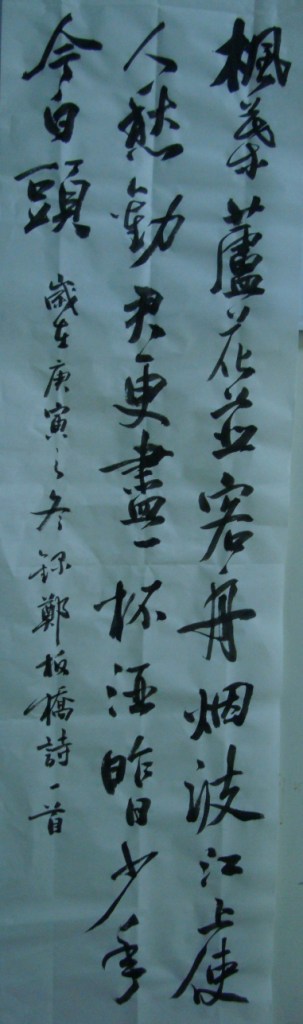 楓葉蘆花並客舟烟波江上使
人愁勸君更盡一杯酒昨日少年
今白頭
歲在庚寅之冬錄鄭板橋詩一首